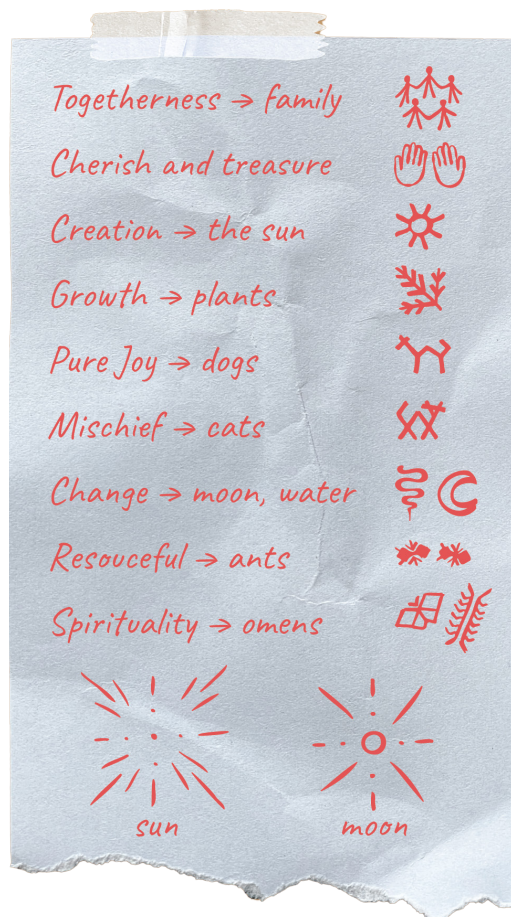 Togetherness → family
Cherish and treasure
Creation → the sun
Growth → plants
Pure Joy → dogs
Mischief → cats
Change → moon, water
Resouceful → ants
Spirituality → omens
sun
moon